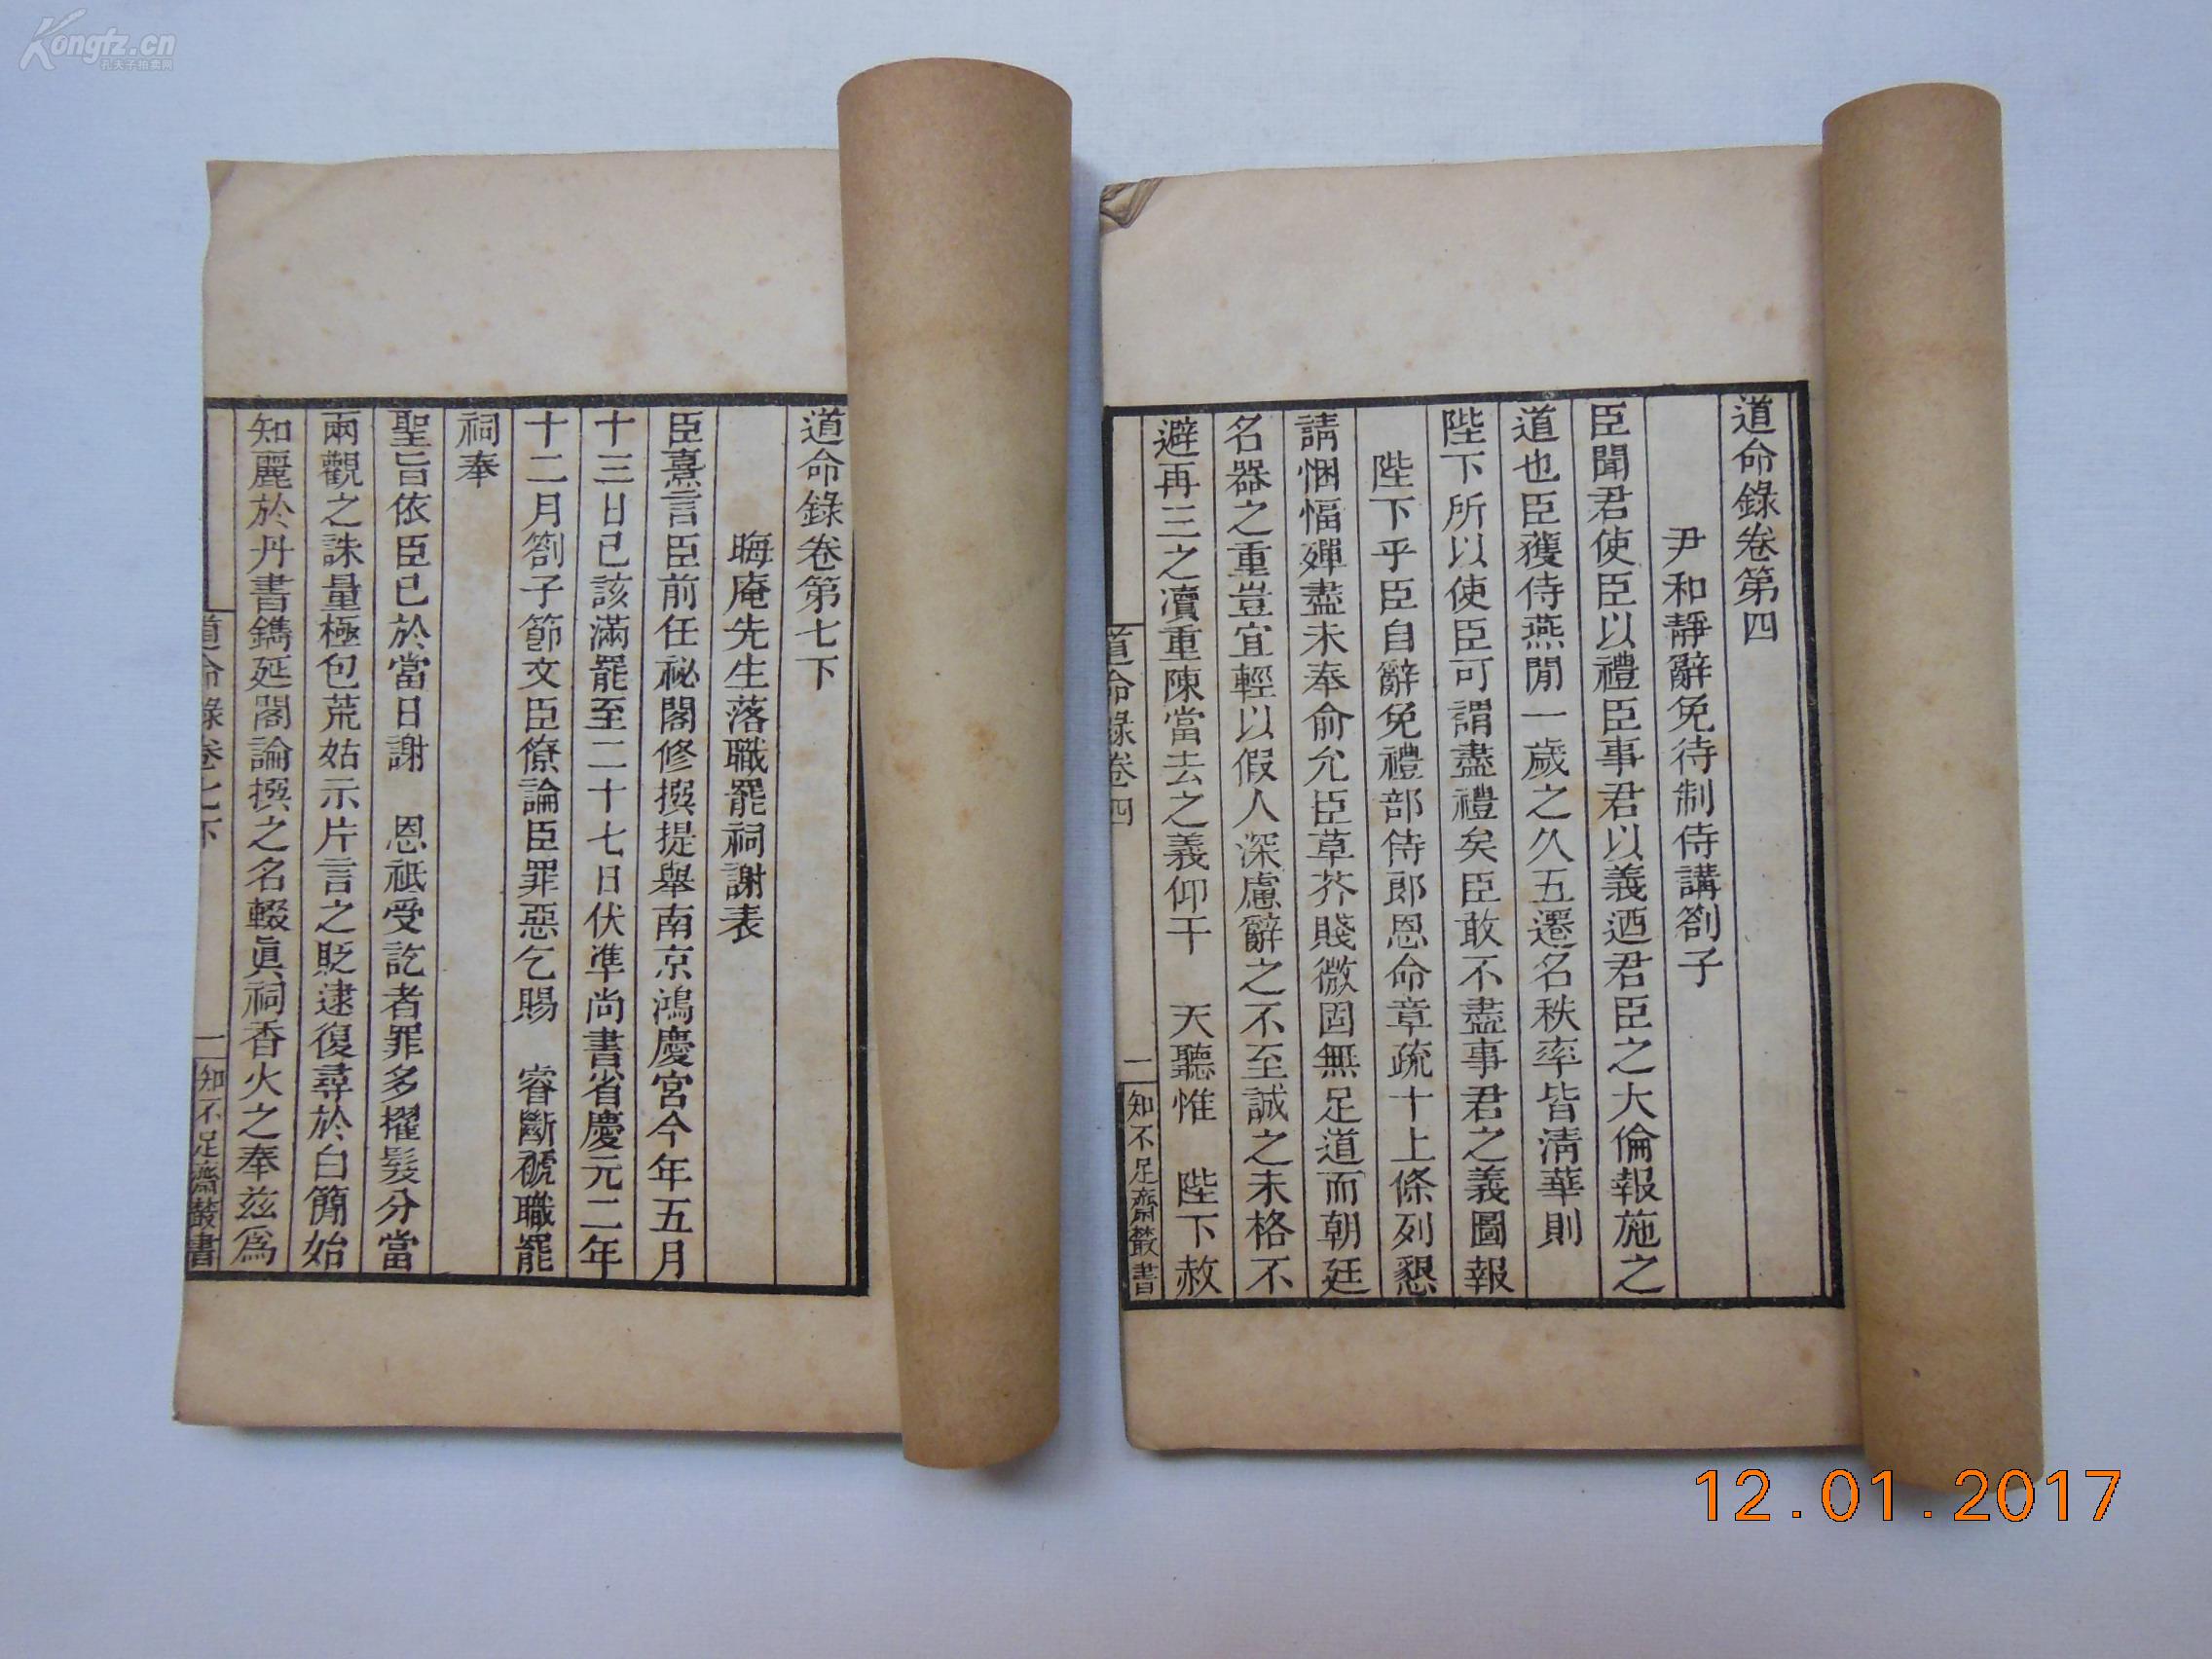 Kongfz.cn
孔夫子拍卖网
道命錄卷第四
尹和靜辭免待制侍講劄子
臣聞君使臣以禮臣事君以義迺君臣之大倫報施之
道也臣獲侍燕閒一歲之久五遷名秩率皆清華則
陛下所以使臣可謂盡禮矣臣敢不盡事君之義圖報
陛下乎臣自辭免禮部侍郎恩命章疏十上條列懇
請悃愊殫盡未奉俞允臣草芥賤微固無足道而朝廷
名器之重豈宜輕以假人深慮辭之不至誠之未格不
避再三之瀆重陳當去之義仰干 天聽惟 陛下赦
道命錄卷四
一
知不足齋叢書
道命錄卷第七下
晦庵先生落職罷祠謝表
臣熹言臣前任祕閣修撰提舉南京鴻慶宮今年五月
十三日已該滿罷至二十七日伏準尚書省慶元二年
十二月劄子節文臣僚論臣罪惡乞賜 睿斷褫職罷
祠奉
聖旨依臣已於當日謝 恩祗受訖者罪多擢髮分當
兩觀之誅量極包荒姑示片言之貶逮復尋於白簡始
知麗於丹書鐫延閣論撰之名輟眞祠香火之奉茲爲
道命錄卷七下
一
知不足齋叢書
12.01.2017